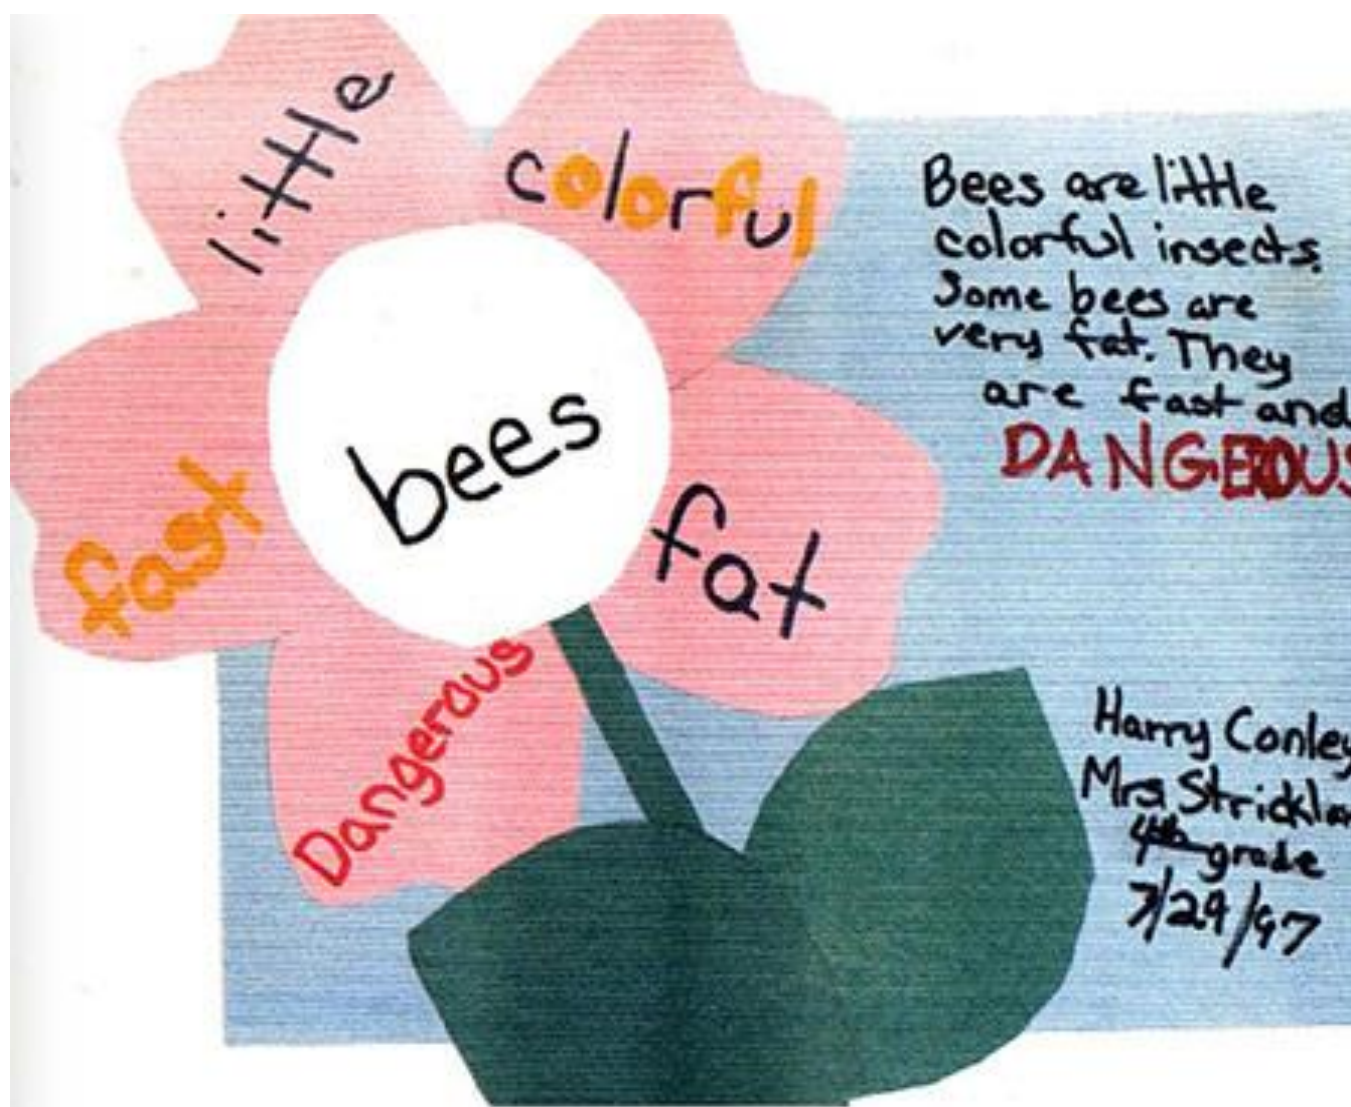 little
colorful
bees
fast
fat
Dangerous
Bees are little
colorful insects.
Some bees are
very fat. They
are fast and
DANGEROUS
Harry Conley
Mrs. Stricklan
4th grade
7/29/97